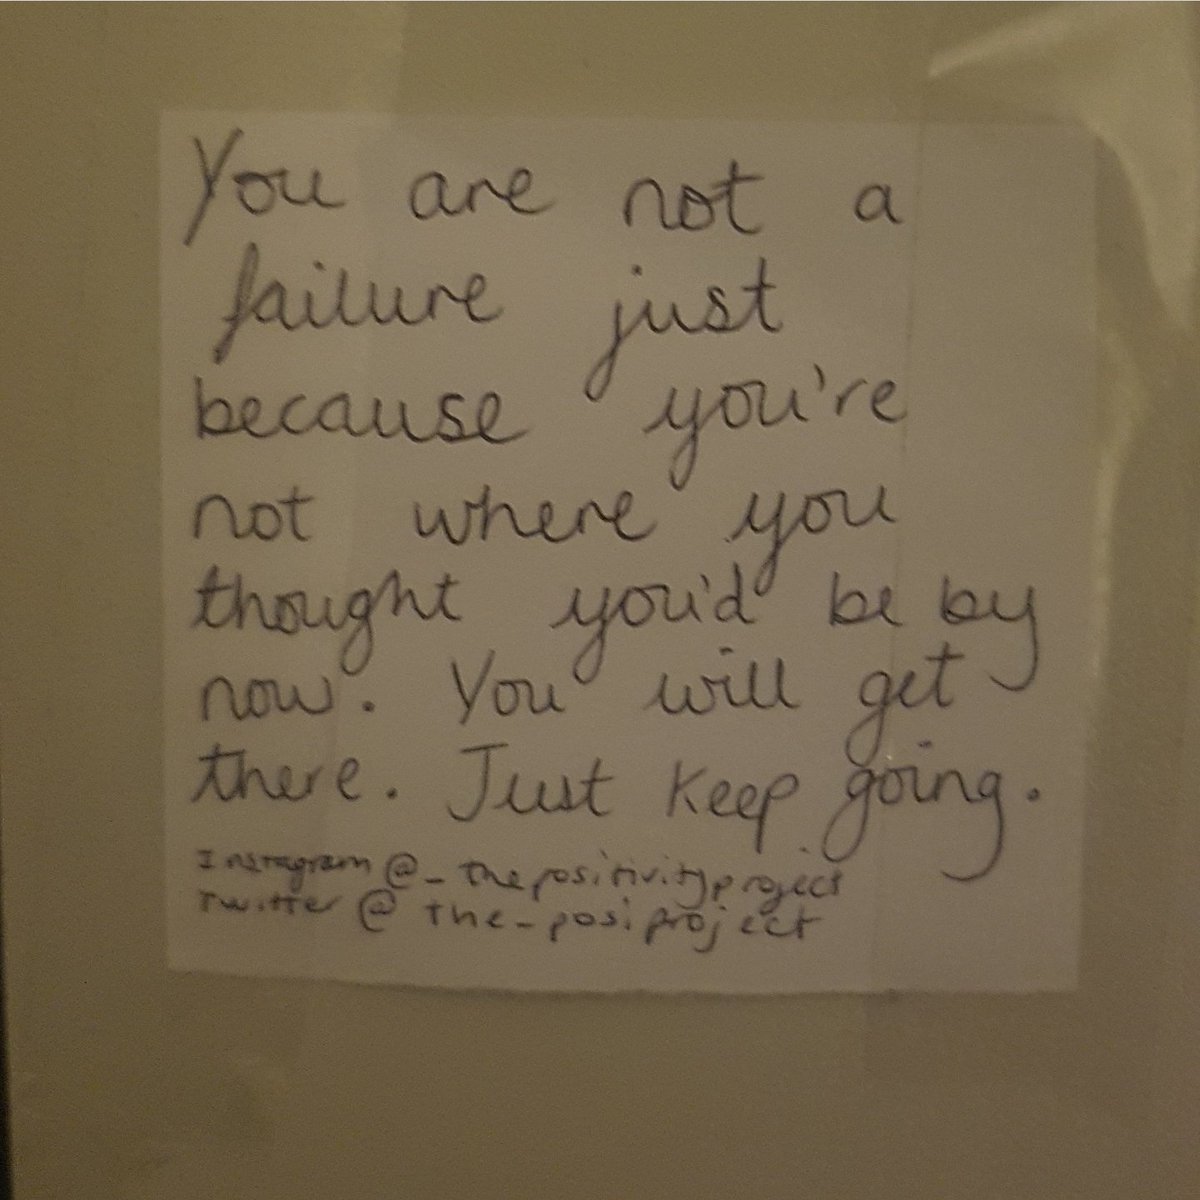 You are not a
failure just
because you're
not where you
thought you'd be by
now. You will get
there. Just keep going.
Instagram @_thepositivityproject
Twitter @the_posiproject